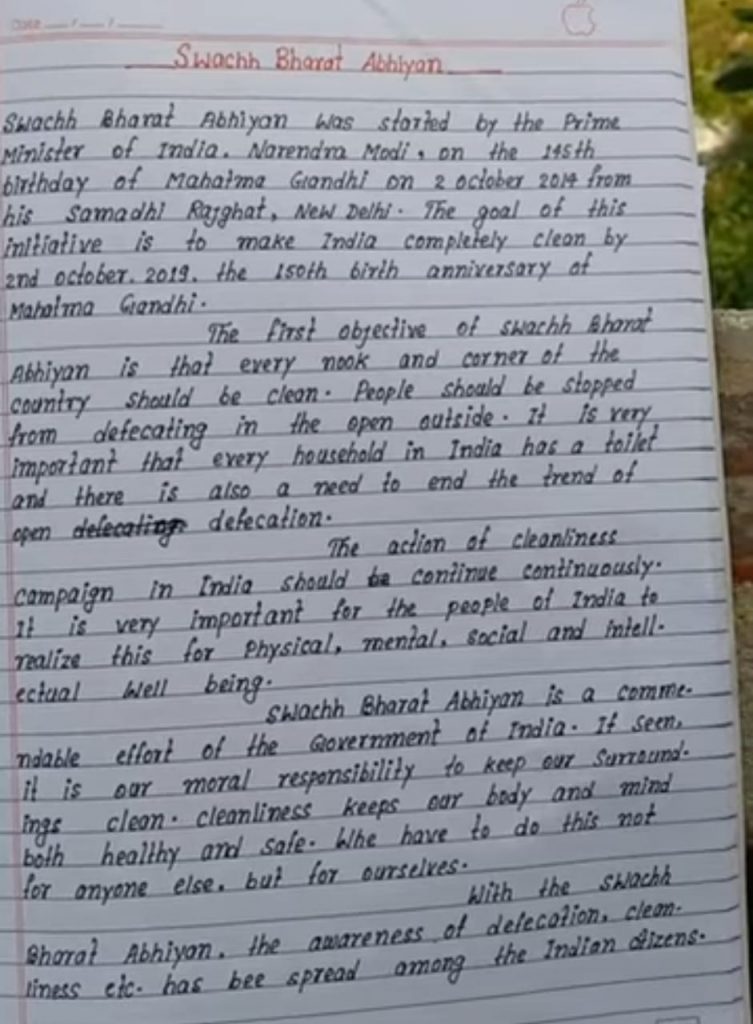 Date __/__/____
Swachh Bharat Abhiyan
Swachh Bharat Abhiyan was started by the Prime
Minister of India. Narendra Modi, on the 145th
birthday of Mahatma Gandhi on 2 october 2014 from
his Samadhi Rajghat, New Delhi. The goal of this
initiative is to make India completely clean by
2nd october. 2019. the 150th birth anniversary of
Mahatma Gandhi.
The first objective of swachh Bharat
Abhiyan is that every nook and corner of the
country should be clean. People should be stopped
from defecating in the open outside. It is very
important that every household in India has a toilet
and there is also a need to end the trend of
open defecating defecation.
The action of cleanliness
campaign in India should be continue continuously.
It is very important for the people of India to
realize this for Physical, mental, social and intell-
ectual well being.
Swachh Bharat Abhiyan is a comme-
ndable effort of the Government of India. If seen,
it is our moral responsibility to keep our Surround-
ings clean. cleanliness keeps our body and mind
both healthy and safe. Whe have to do this not
for anyone else. but for ourselves.
With the swachh
Bharat Abhiyan. the awareness of defecation, clean-
liness etc. has bee spread among the Indian citizens.